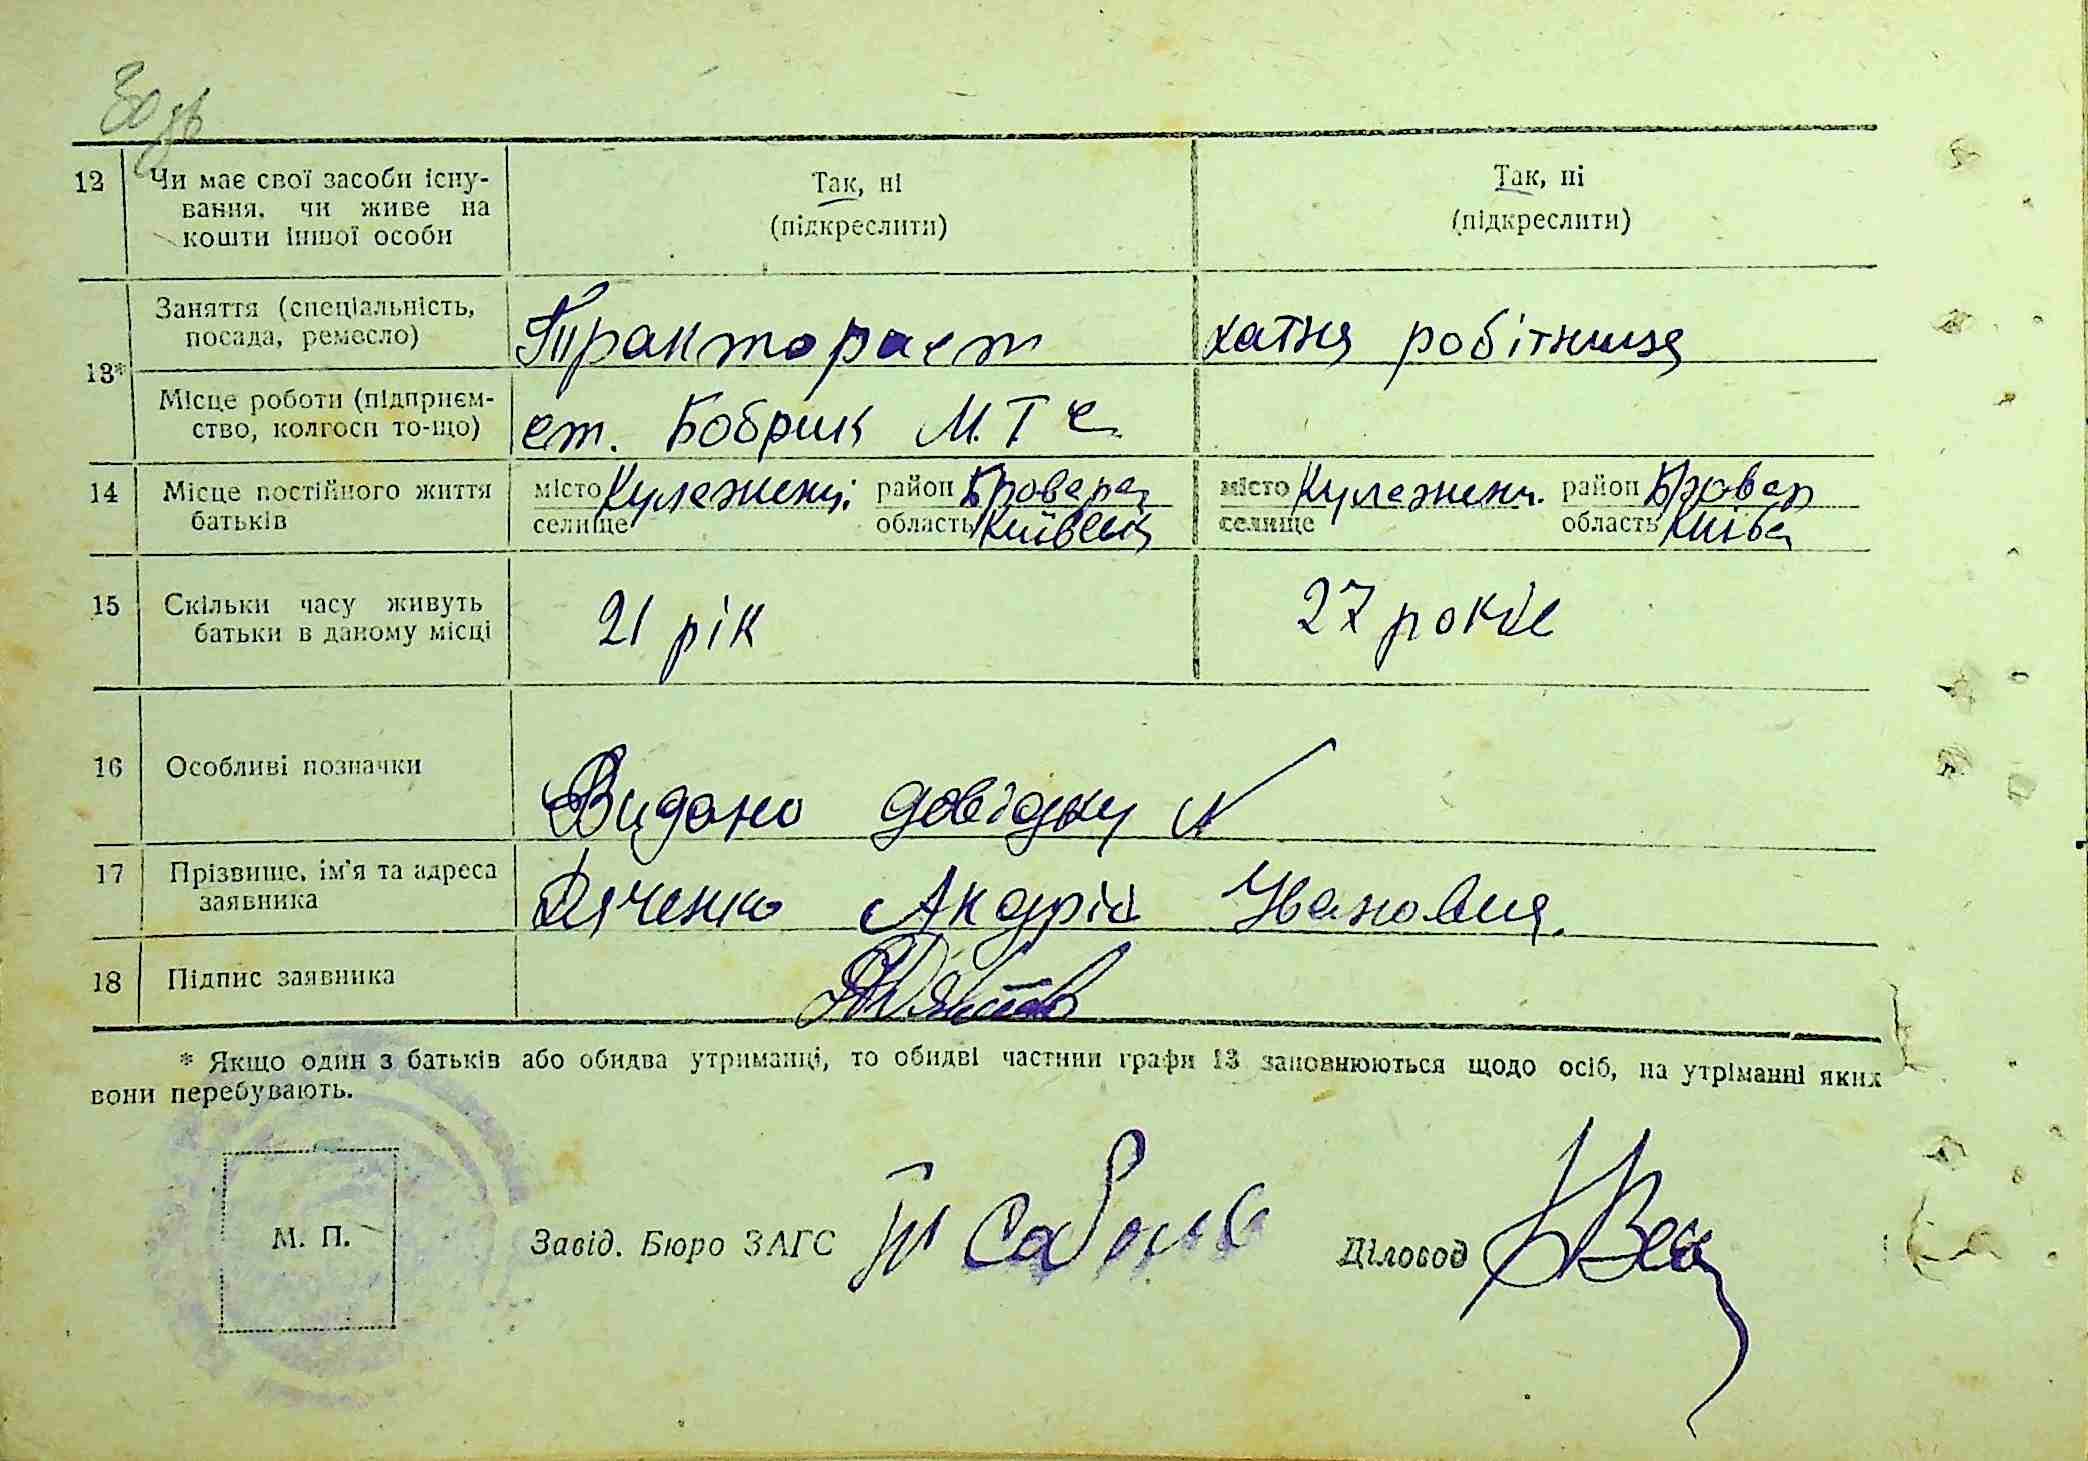 30 зв
12 Чи має свої засоби існу-
вання, чи живе на
кошти іншої особи
Так, ні
(підкреслити)
Так, ні
(підкреслити)
13*
Заняття (спеціальність,
посада, ремесло)
Тракторист
хатня робітниця
Місце роботи (підприєм-
ство, колгосп то-що)
ст. Бобрик М.Т.С.
14 Місце постійного життя
батьків
місто Кулеженці район Бровара
селище область Київськ
місто Кулеженц. район Бровар
селище область Київс
15 Скільки часу живуть
батьки в даному місці
21 рік
27 років
16 Особливі позначки
Видано довідку N
17 Прізвище, ім'я та адреса
заявника
Дяченко Андрій Іванович.
18 Підпис заявника
* Якщо один з батьків або обидва утриманці, то обидві частини графи 13 заповнюються щодо осіб, на утріманні яких
вони перебувають.
М. П.
Завід. Бюро ЗАГС
Діловод